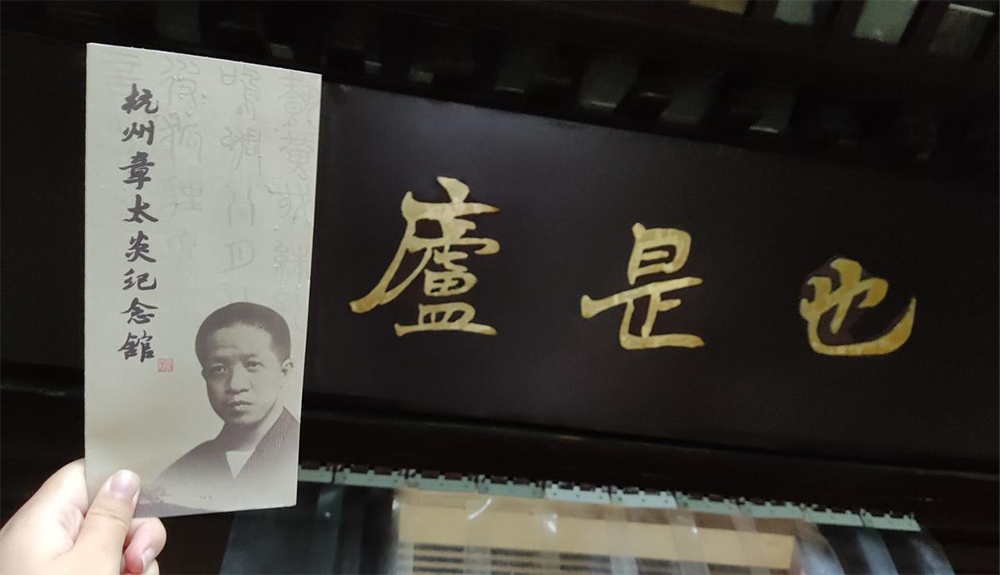 杭州章太炎纪念館
也是廬